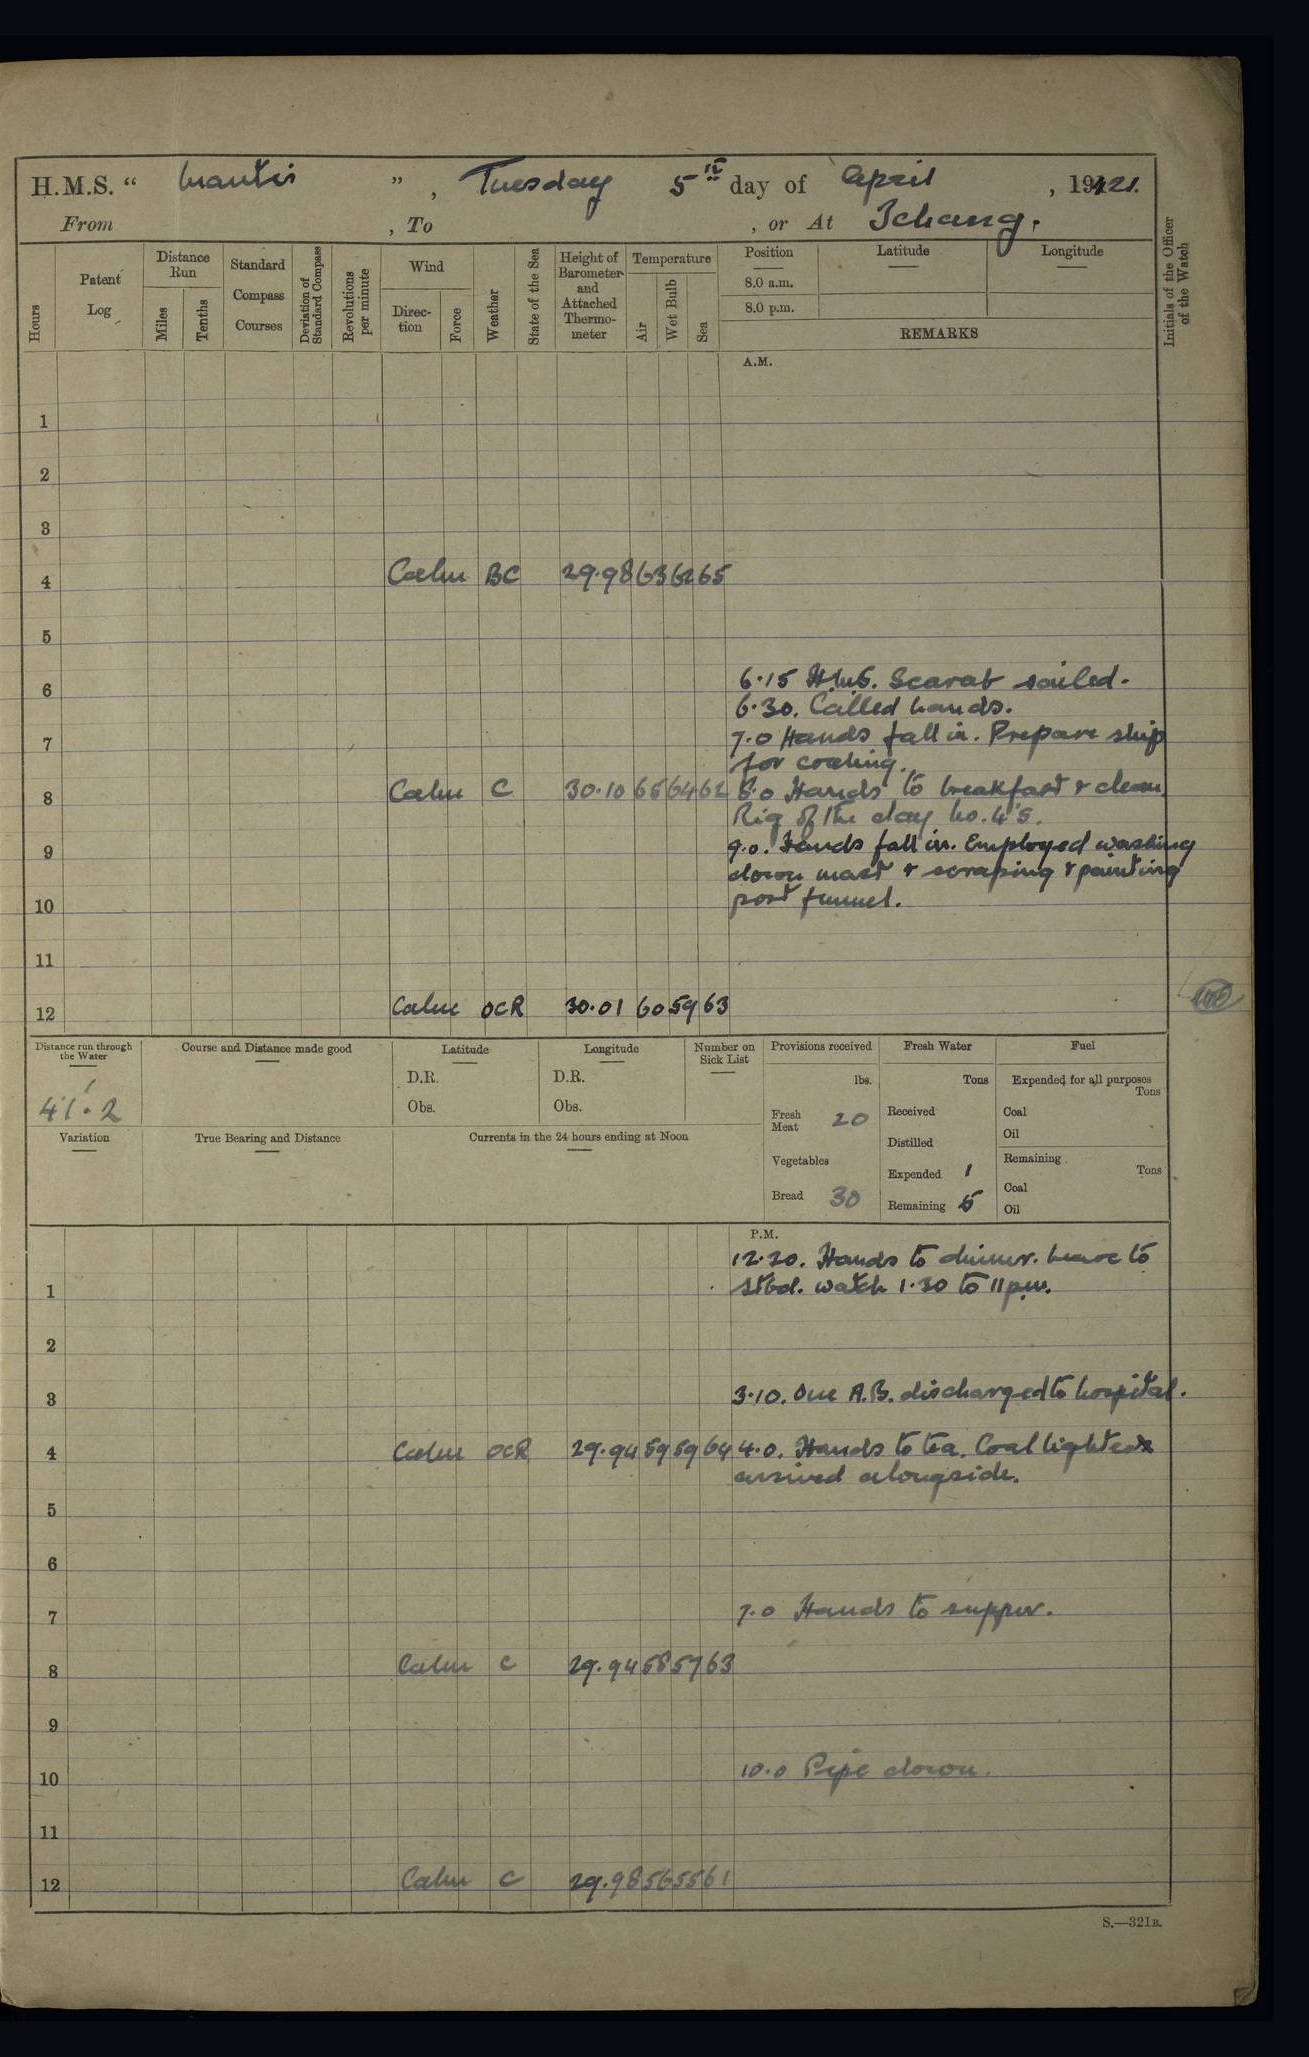 H.M.S. “ Mantis ” , Tuesday 5th day of April , 1921.
From , To , or At Ichang.
Hours
Patent Log
Distance Run
Miles
Tenths
Standard Compass Courses
Deviation of Standard Compass
Revolutions per minute
Wind
Direc-tion
Force
Weather
State of the Sea
Height of Barometer and Attached Thermo-meter
Temperature
Air
Wet Bulb
Sea
Position
8.0 a.m.
8.0 p.m.
Latitude
Longitude
REMARKS
Initials of the Officer of the Watch
A.M.
1
2
3
4 Calm BC 29.98 63 62 65
5
6 6.15 H.M.S. Scarab sailed.
6.30. Called hands.
7 7.0 Hands fall in. Prepare ship
for coaling.
8 Calm C 30.10 65 64 62 8.0 Hands to breakfast & clean.
Rig of the day No. 4's.
9 9.0. Hands fall in. Employed washing
down mast & scraping & painting
10 port funnel.
11
12 Calm OCR 30.01 60 59 63
Distance run through the Water
41.2
Course and Distance made good
Latitude
D.R.
Obs.
Longitude
D.R.
Obs.
Number on Sick List
Provisions received
lbs.
Fresh Meat 20
Vegetables
Bread 30
Fresh Water
Tons
Received
Distilled
Expended 1
Remaining 5
Fuel
Expended for all purposes
Tons
Coal
Oil
Remaining
Tons
Coal
Oil
Variation
True Bearing and Distance
Currents in the 24 hours ending at Noon
P.M.
12.20. Hands to dinner. Leave to
1 stbd. watch 1.30 to 11 p.m.
2
3 3.10. One A.B. discharged to hospital.
4 Calm OCR 29.94 59 59 64 4.0. Hands to tea. Coal lighter
arrived alongside.
5
6
7 7.0 Hands to supper.
8 Calm C 29.94 58 57 63
9
10 10.0 Pipe down.
11
12 Calm C 29.98 56 55 61
S.—321B.